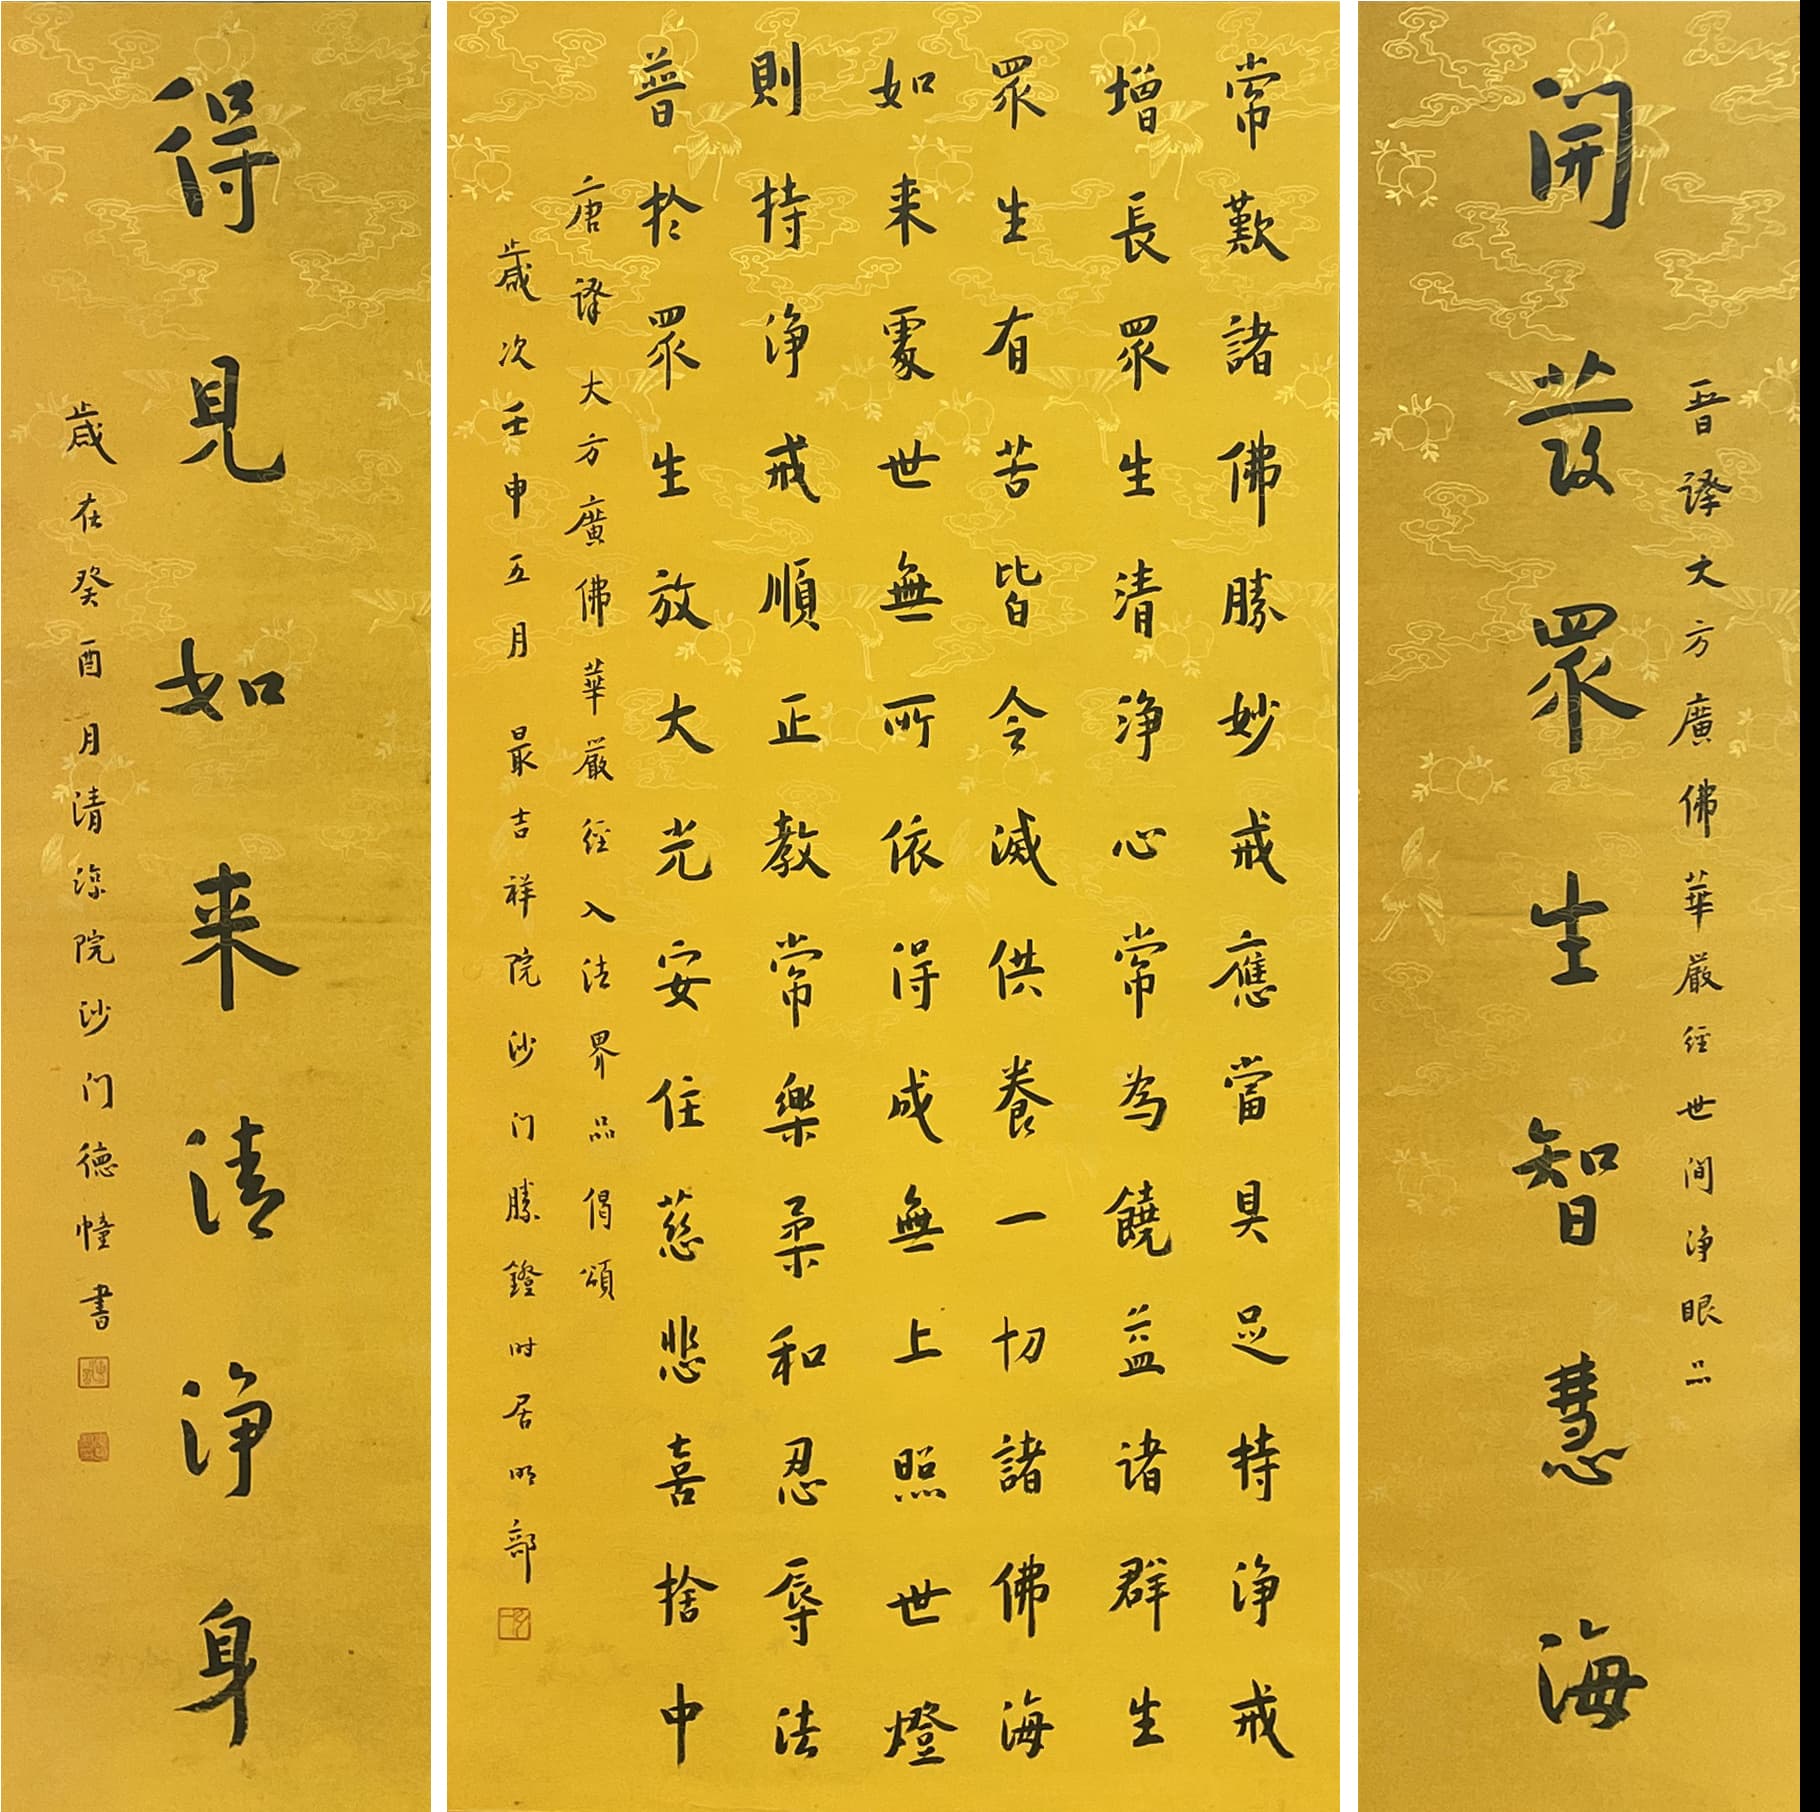 晋譯大方廣佛華嚴經世間净眼品
開發眾生智慧海
常歎諸佛勝妙戒應當具足持净戒
增長眾生清净心常為饒益诸群生
眾生有苦皆令滅供養一切諸佛海
如来處世無所依得成無上照世燈
則持净戒順正教常樂柔和忍辱法
普於眾生放大光安住慈悲喜捨中
唐譯大方廣佛華嚴經入法界品偈頌
歲次壬申五月最吉祥院沙门勝鐙时居明部
得見如来清净身
歲在癸酉月清涼院沙门德幢書